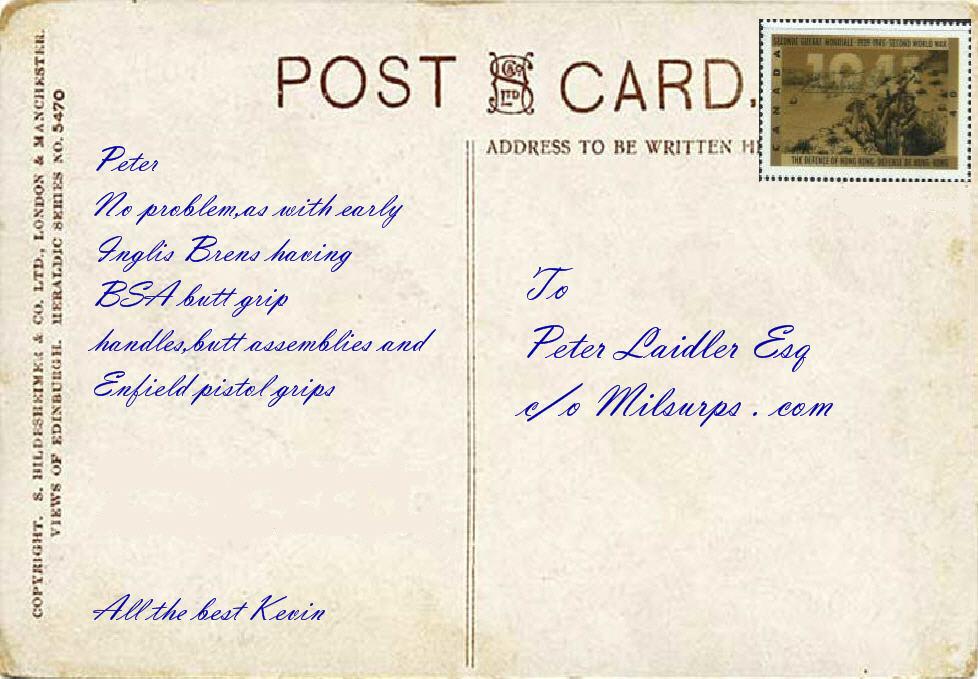 COPYRIGHT. S. HILDESHEIMER & CO. LTD., LONDON & MANCHESTER.
VIEWS OF EDINBURGH. HERALDIC SERIES NO. 5470
POST CARD.
S.H. & Co LTD
ADDRESS TO BE WRITTEN H
SECONDE GUERRE MONDIALE · 1939-1945 · SECOND WORLD WAR
1941
CANADA
40
THE DEFENCE OF HONG KONG · DÉFENSE DE HONG KONG
Peter
No problem,as with early
Inglis Brens having
BSA butt grip
handles,butt assemblies and
Enfield pistol grips
All the best Kevin
To
Peter Laidler Esq
c/o Milsurps . com